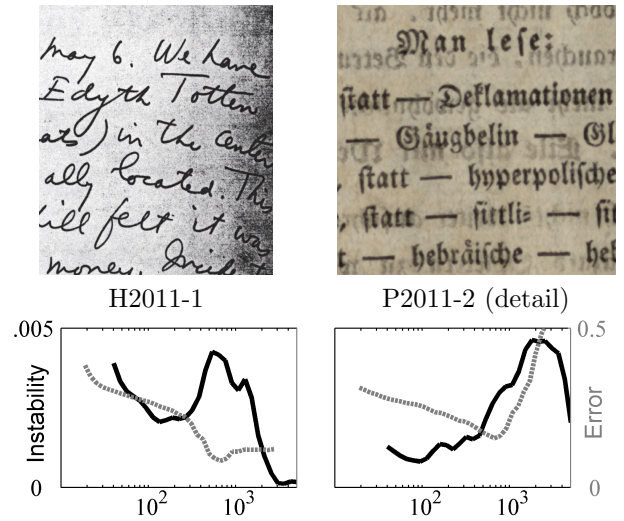 may 6. We have
Edyth Totten
ats) in the center
ally located. This
ill felt it was
money. Incident
Man lese:
statt — Deklamationen
— Gäugbelin — Gl
, statt — hyperpolische
, statt — sittli= — sit
t — hebräische — heb
H2011-1
P2011-2 (detail)
.005
Instability
0
10² 10³
0.5
Error
0
10² 10³